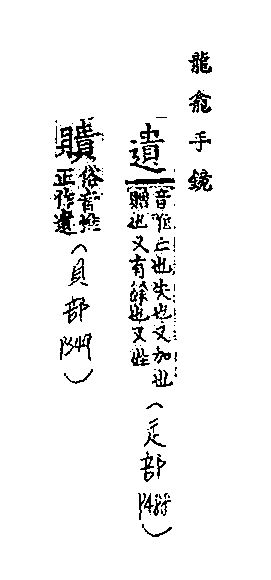 龍龕手鏡
遺
音惟亡也失也又加也
贈也又有餘也又姓
(辵部
P488)
俗音惟
正作遺
(貝部
P349)